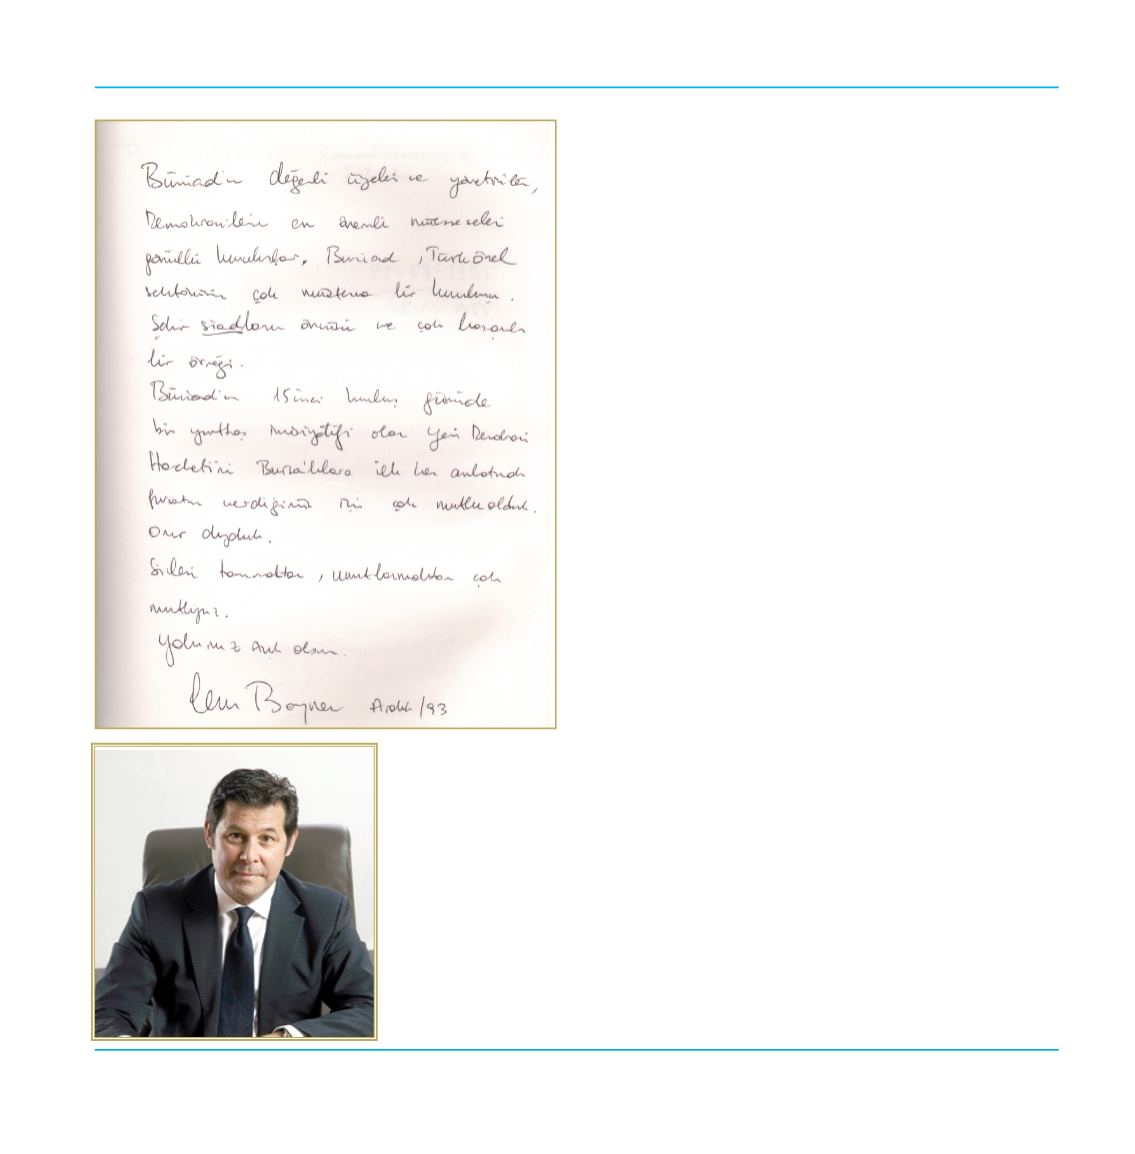 Büsiad'ın değerli üyeleri ve yöneticileri,
Demokrasilerin en önemli müesseseleri
gönüllü kuruluşlar, Busiad, Türk özel
sektörünün çok müstesna bir kuruluşu.
Şehir siadların öncüsü ve çok başarılı
bir örneği.
Büsiad'ın 15inci kuruluş gününde
bir yurttaş inisiyatifi olan Yeni Demokrasi
Hareketini Bursa'lılara ilk kez anlatmak
fırsatını verdiğiniz için çok mutlu olduk.
Onur duyduk.
Sizleri tanımaktan, çok
mutluyuz.
Yolunuz açık olsun.
Cem Boyner Aralık/93